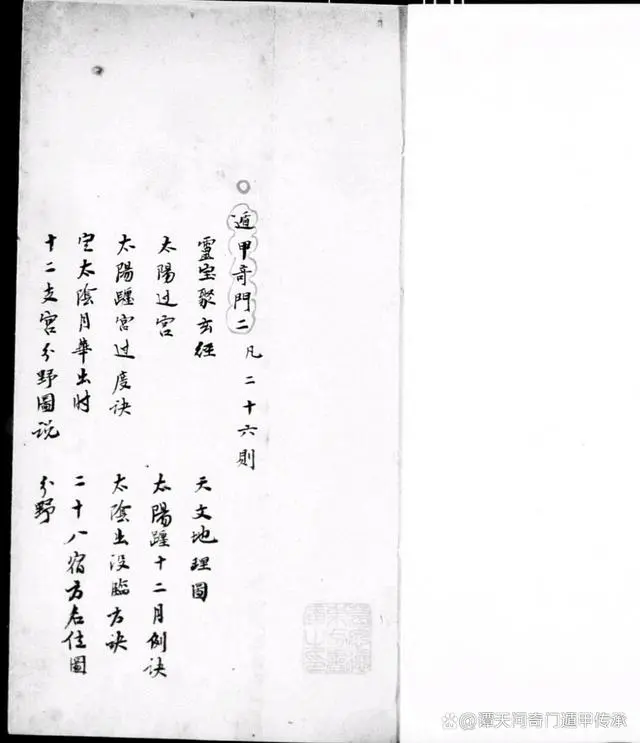 遁甲竒門二 凡二十六則
靈宝聚玄經 天文地理圖
太陽过宫 太陽躔十二月例诀
太陽躔宫过度诀 太陰出没臨方诀
定太陰月華出时 二十八宿方名位圖
十二支宫分野圖说 分野
@谭天问奇门遁甲传承